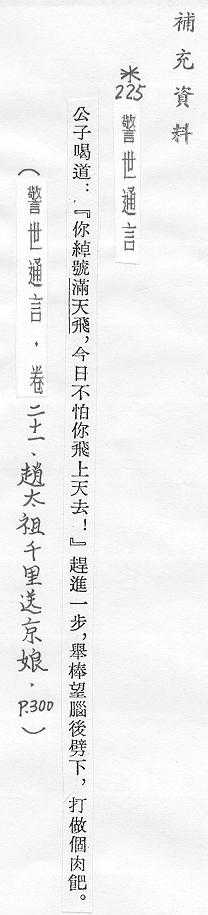 補充資料
*225 警世通言
公子喝道：『你綽號滿天飛，今日不怕你飛上天去！』趕進一步，舉棒望腦後劈下，打做個肉𩛩。
（警世通言．卷二十一、趙太祖千里送京娘．P.300）